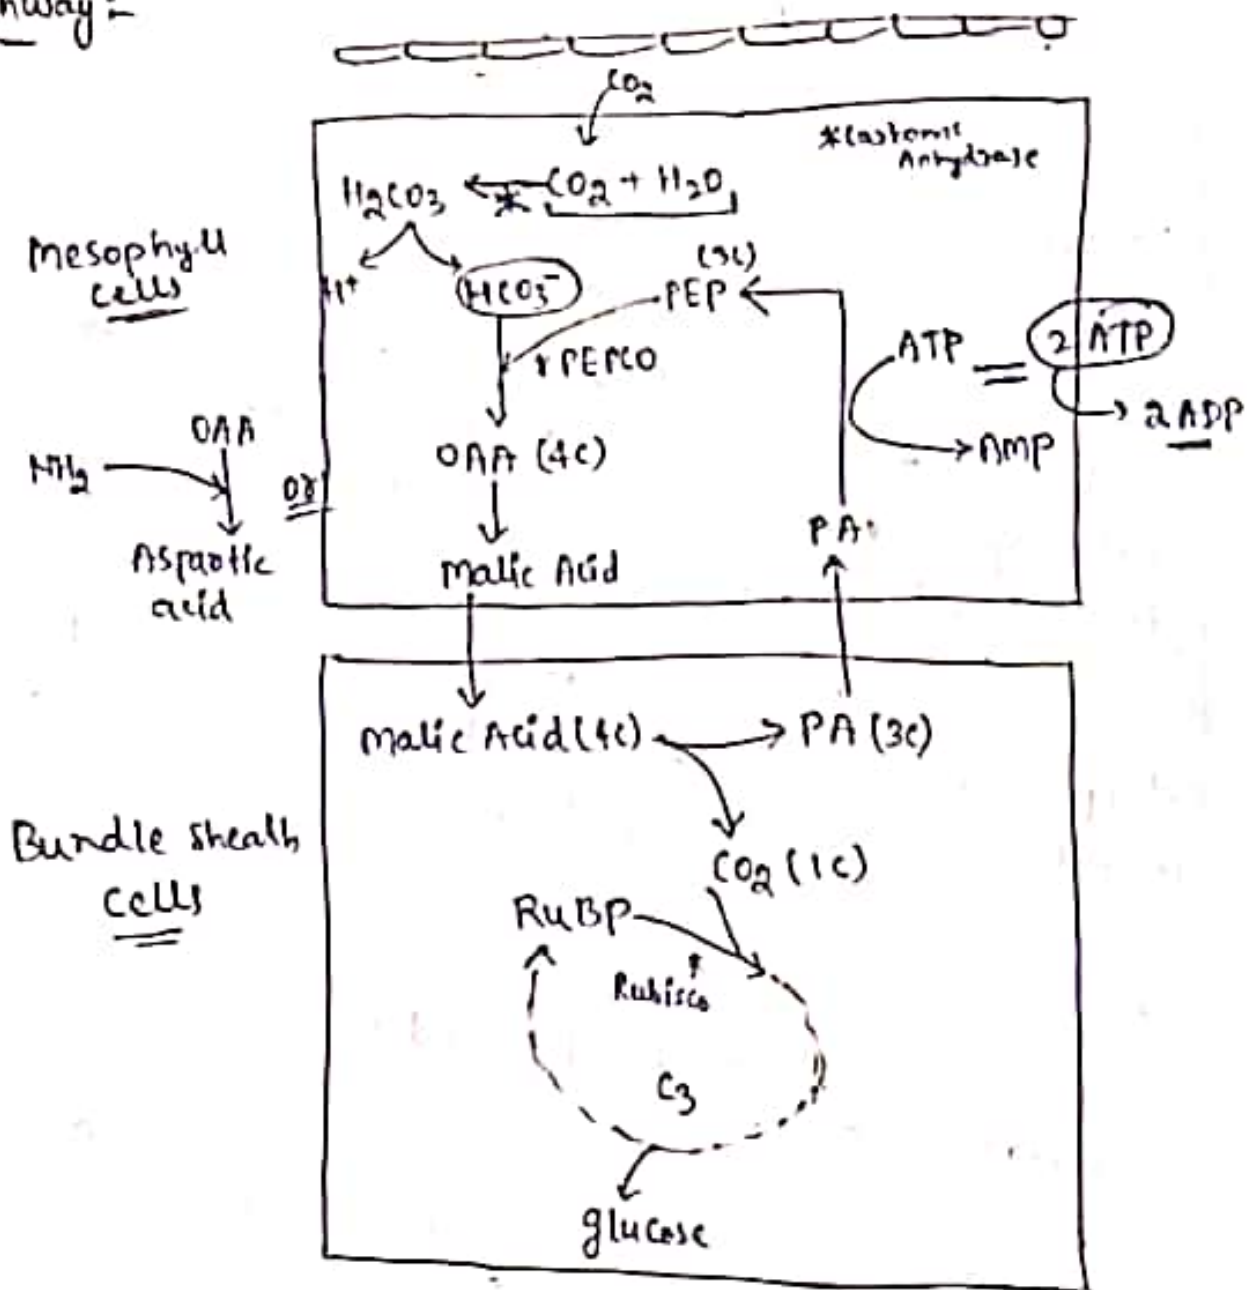 CO2
*Carbonic
Anhydrase
H2CO3 ← * CO2 + H2O
Mesophyll
cells
H+
HCO3-
PEP
(3C)
PEPCO
ATP = 2 ATP
2 ADP
AMP
OAA
NH2
OAA (4C)
or
PA
Aspartic
acid
Malic Acid
Malic Acid (4C) → PA (3C)
Bundle sheath
cells
CO2 (1C)
RuBP
Rubisco
C3
glucose